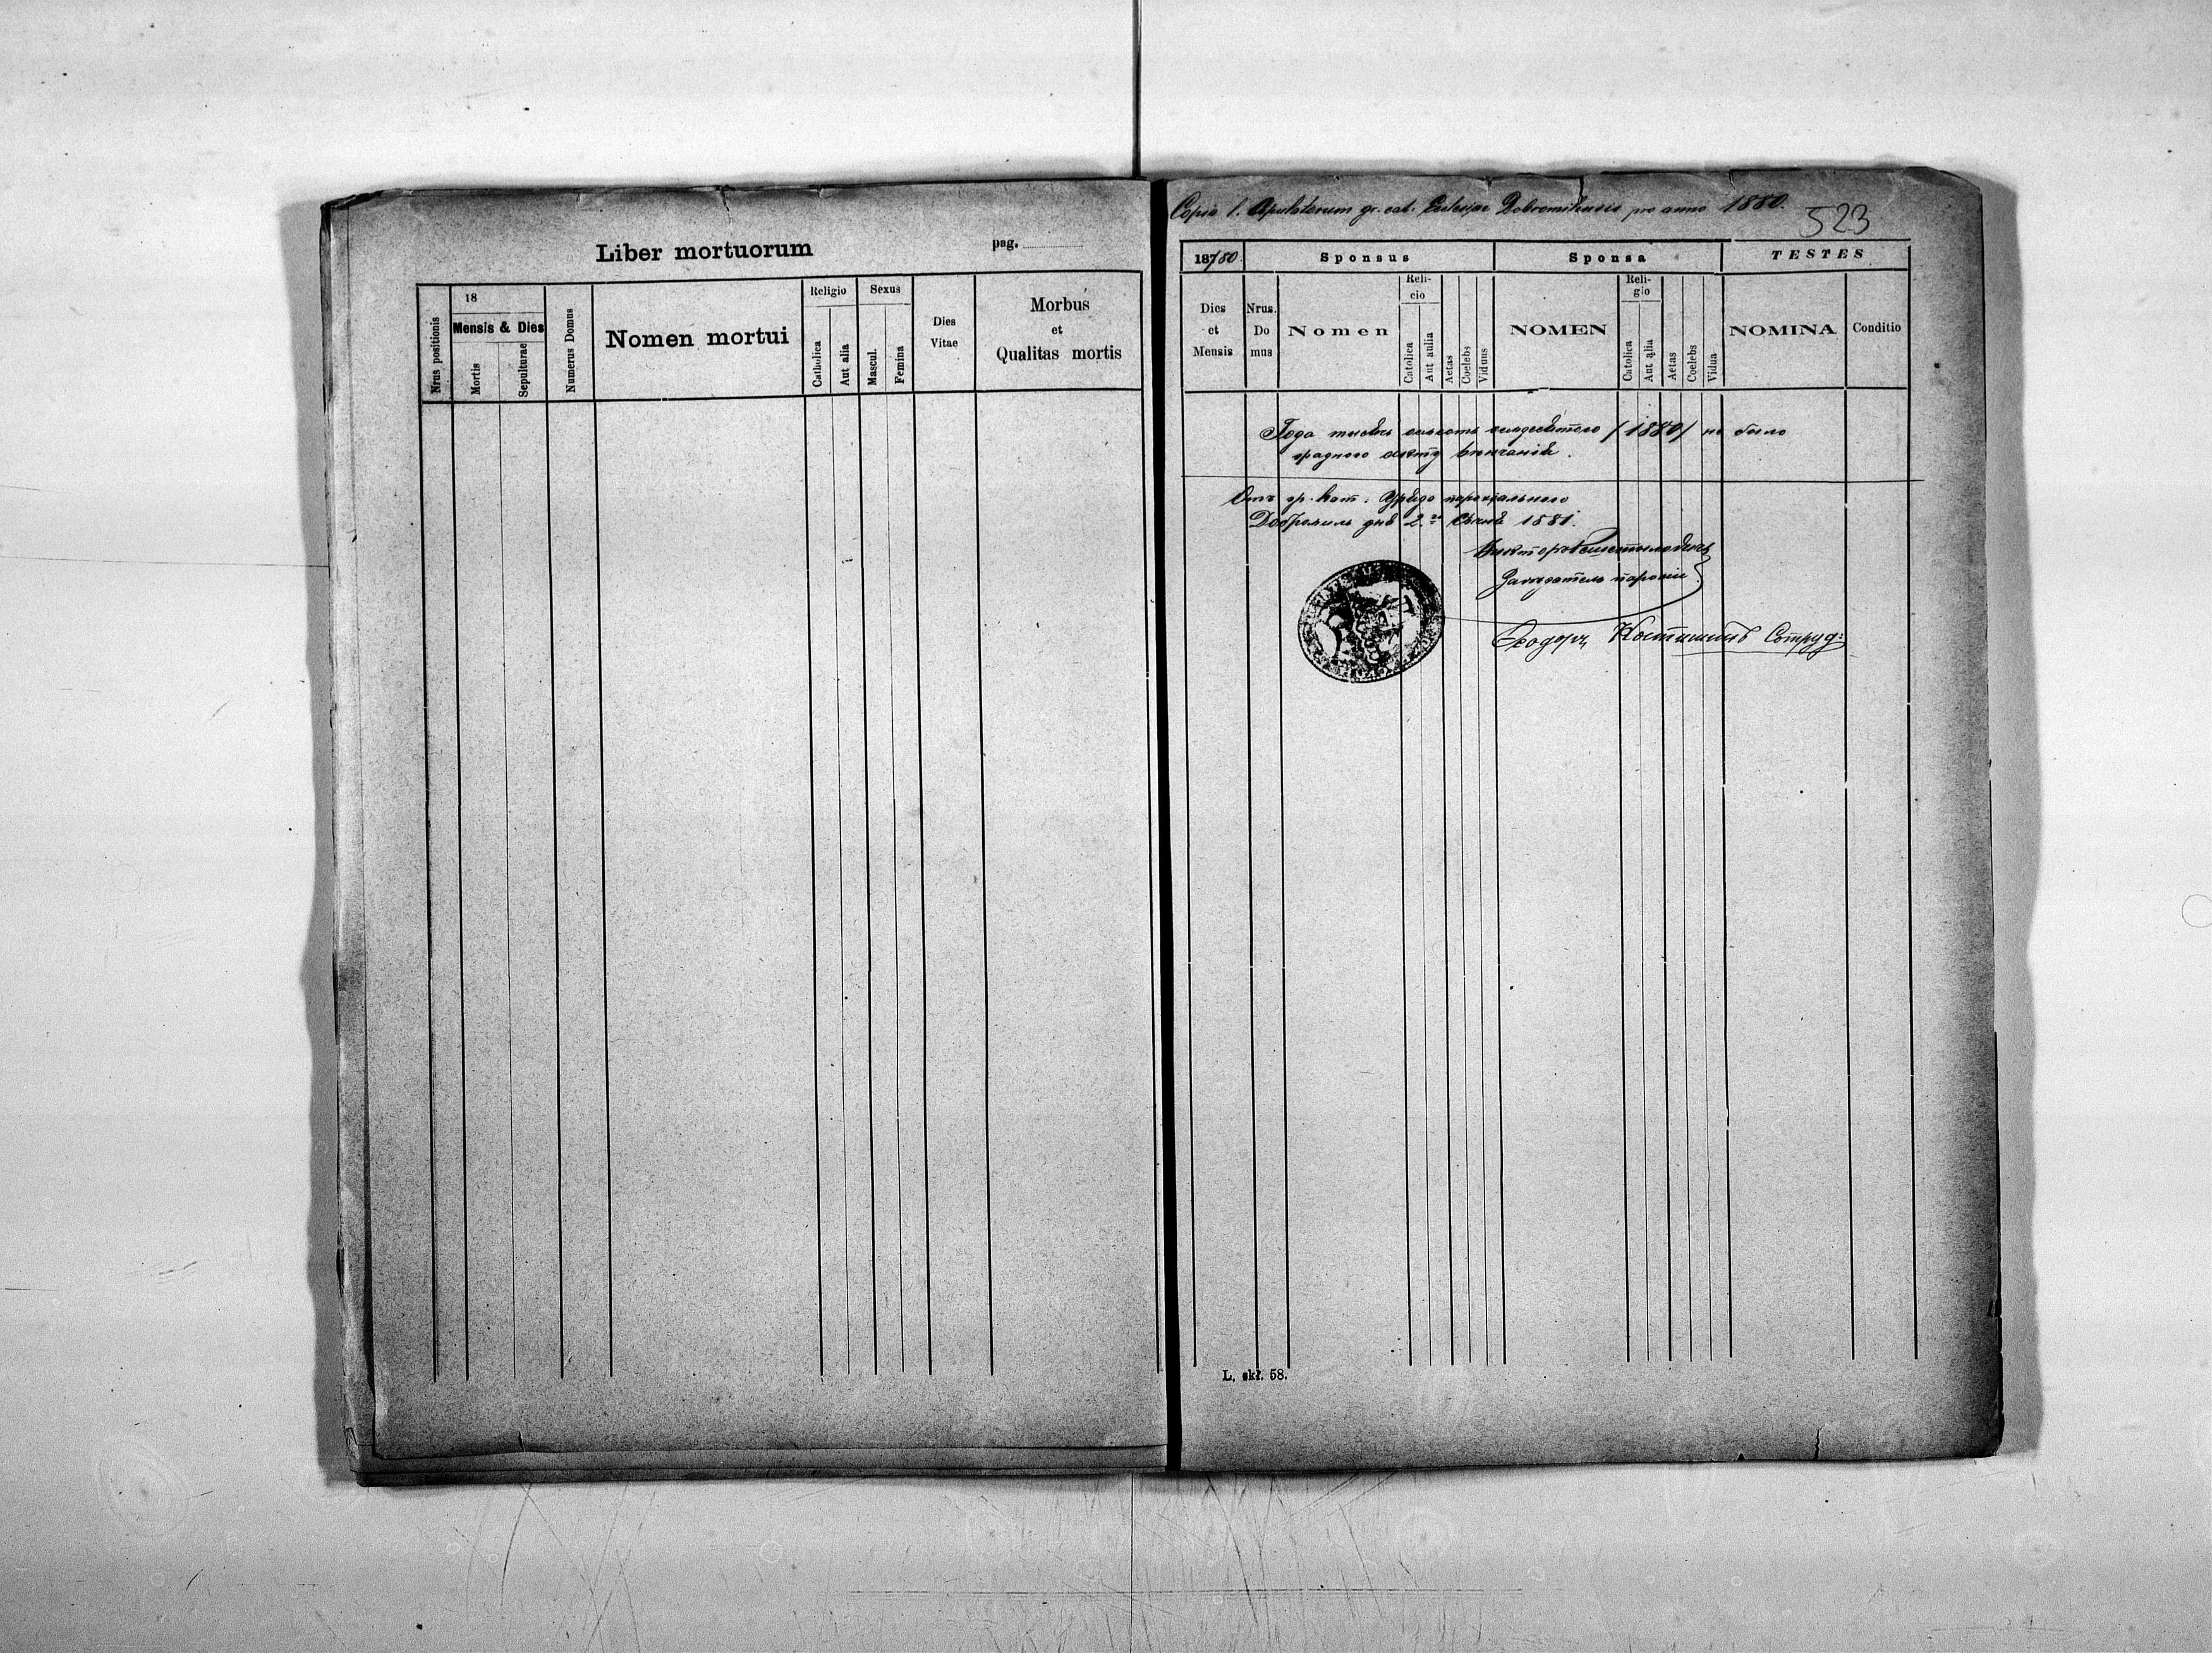 Liber mortuorum
pag.
Nrus positionis
18
Mensis & Dies
Mortis
Sepulturae
Numerus Domus
Nomen mortui
Religio
Catholica
Aut alia
Sexus
Mascul.
Femina
Dies
Vitae
Morbus
et
Qualitas mortis
Copia l. Copulatorum gr. cat. Ecclesiae Dobromilensis pro anno 1880.
523
187/80
Sponsus
Sponsa
TESTES
Dies
et
Mensis
Nrus.
Do
mus
Nomen
Reli-
cio
Catolica
Aut aulia
Aetas
Coelebs
Viduus
NOMEN
Reli-
gio
Catolica
Aut alia
Aetas
Coelebs
Vidua
NOMINA
Conditio
Года /1880/ не было
Отъ гр. кат.
Добромиль дня 2. 1881.
парохіи
Теодоръ Сотруд:
L, skł. 58.